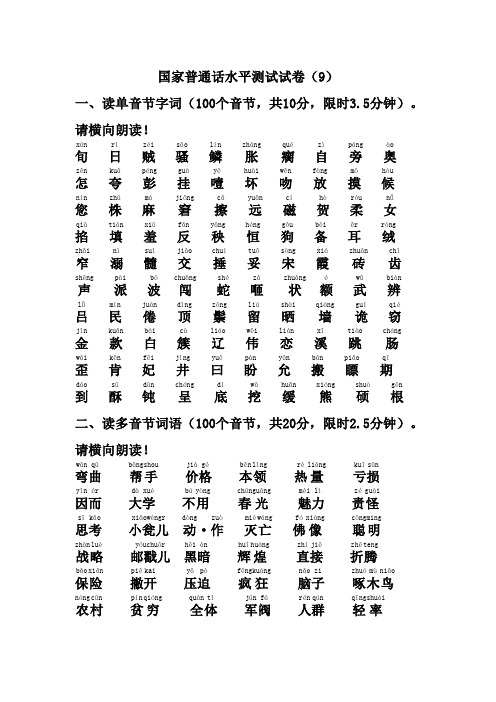 国家普通话水平测试试卷（9）
一、读单音节字词（100个音节，共10分，限时3.5分钟）。
请横向朗读！
xún rì zéi sāo lín zhàng qué zì páng ào
旬 日 贼 骚 鳞 胀 瘸 自 旁 奥
zěn kuā péng guà yē huài wěn fàng mō hòu
怎 夸 彭 挂 噎 坏 吻 放 摸 候
nín zhū má jiǒng cā yuǎn cí hè róu nǚ
您 株 麻 窘 擦 远 磁 贺 柔 女
qiā tián xiū fǎn yāng héng gǒu bèi ěr róng
掐 填 羞 反 秧 恒 狗 备 耳 绒
zhǎi nì suǐ jiāo chuí tuǒ sòng xiá zhuān chǐ
窄 溺 髓 交 捶 妥 宋 霞 砖 齿
shēng pài bō chuǎng shé zā zhuàng é wǔ biàn
声 派 波 闯 蛇 咂 状 额 武 辨
lǚ mín juàn dǐng zōng liú shài qiáng guǐ qiè
吕 民 倦 顶 鬃 留 晒 墙 诡 窃
jīn kuǎn bái cù liáo wěi liàn xī tiào cháng
金 款 白 簇 辽 伟 恋 溪 跳 肠
wāi kěn fēi jǐng yuē pàn yǔn bān piáo qī
歪 肯 妃 井 曰 盼 允 搬 瞟 期
dào sū dùn chéng dǐ wā huǎn xióng shuò gēn
到 酥 钝 呈 底 挖 缓 熊 硕 根
二、读多音节词语（100个音节，共20分，限时2.5分钟）。
请横向朗读！
wān qū bāngshou jià gé běn lǐng rè liàng kuī sǔn
弯曲 帮手 价格 本领 热量 亏损
yīn ér dà xué bú yòng chūnguāng mèi lì zé guài
因而 大学 不用 春光 魅力 责怪
sī kǎo xiǎowèngr dòng zuò mièwáng fó xiàng cōngmíng
思考 小瓮儿 动·作 灭亡 佛像 聪明
zhàn lüè yóuchuōr hēi àn huīhuáng zhí jiē zhē teng
战略 邮戳儿 黑暗 辉煌 直接 折腾
bǎo xiǎn piē kāi yā pò fēngkuáng nǎo zi zhuó mù niǎo
保险 撇开 压迫 疯狂 脑子 啄木鸟
nóng cūn pín qióng quán tǐ jūn fá rén qún qīngshuài
农村 贫穷 全体 军阀 人群 轻率